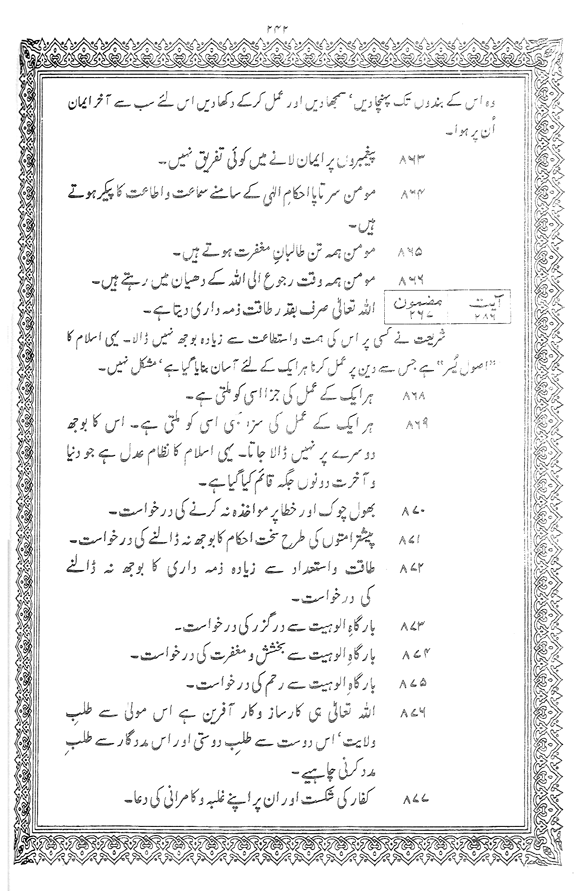 ۲۴۲
وہ اس کے بندوں تک پہنچا دیں، سمجھا دیں اور عمل کر کے دکھا دیں اس لئے سب سے آخر ایمان
اُن پر ہوا۔
۸۶۳ پیغمبروں پر ایمان لانے میں کوئی تفریق نہیں۔
۸۶۴ مومن سر تا پا احکامِ الٰہی کے سامنے سماعت و اطاعت کا پیکر ہوتے
ہیں۔
۸۶۵ مومن ہمہ تن طالبانِ مغفرت ہوتے ہیں۔
۸۶۶ مومن ہمہ وقت رجوع الی اللہ کے دھیان میں رہتے ہیں۔
آیت ۲۸۶ مضمون ۲۶۷ اللہ تعالیٰ صرف بقدرِ طاقت ذمہ داری دیتا ہے۔
شریعت نے کسی پر اس کی ہمت و استطاعت سے زیادہ بوجھ نہیں ڈالا۔ یہی اسلام کا
"اصولِ یُسر" ہے جس سے دین پر عمل کرنا ہر ایک کے لئے آسان بنایا گیا ہے، مشکل نہیں۔
۸۶۸ ہر ایک کے عمل کی جزا اسی کو ملتی ہے۔
۸۶۹ ہر ایک کے عمل کی سزا بھی اسی کو ملتی ہے۔ اس کا بوجھ
دوسرے پر نہیں ڈالا جاتا۔ یہی اسلام کا نظامِ عدل ہے جو دنیا
و آخرت دونوں جگہ قائم کیا گیا ہے۔
۸۷۰ بھول چوک اور خطا پر مواخذہ نہ کرنے کی درخواست۔
۸۷۱ پیشتر امتوں کی طرح سخت احکام کا بوجھ نہ ڈالنے کی درخواست۔
۸۷۲ طاقت و استعداد سے زیادہ ذمہ داری کا بوجھ نہ ڈالنے
کی درخواست۔
۸۷۳ بارگاہِ الوہیت سے درگزر کی درخواست۔
۸۷۴ بارگاہِ الوہیت سے بخشش و مغفرت کی درخواست۔
۸۷۵ بارگاہِ الوہیت سے رحم کی درخواست۔
۸۷۶ اللہ تعالیٰ ہی کارساز و کار آفرین ہے اس مولیٰ سے طلبِ
ولایت، اس دوست سے طلبِ دوستی اور اس مددگار سے طلبِ
مدد کرنی چاہیے۔
۸۷۷ کفار کی شکست اور ان پر اپنے غلبہ و کامرانی کی دعا۔